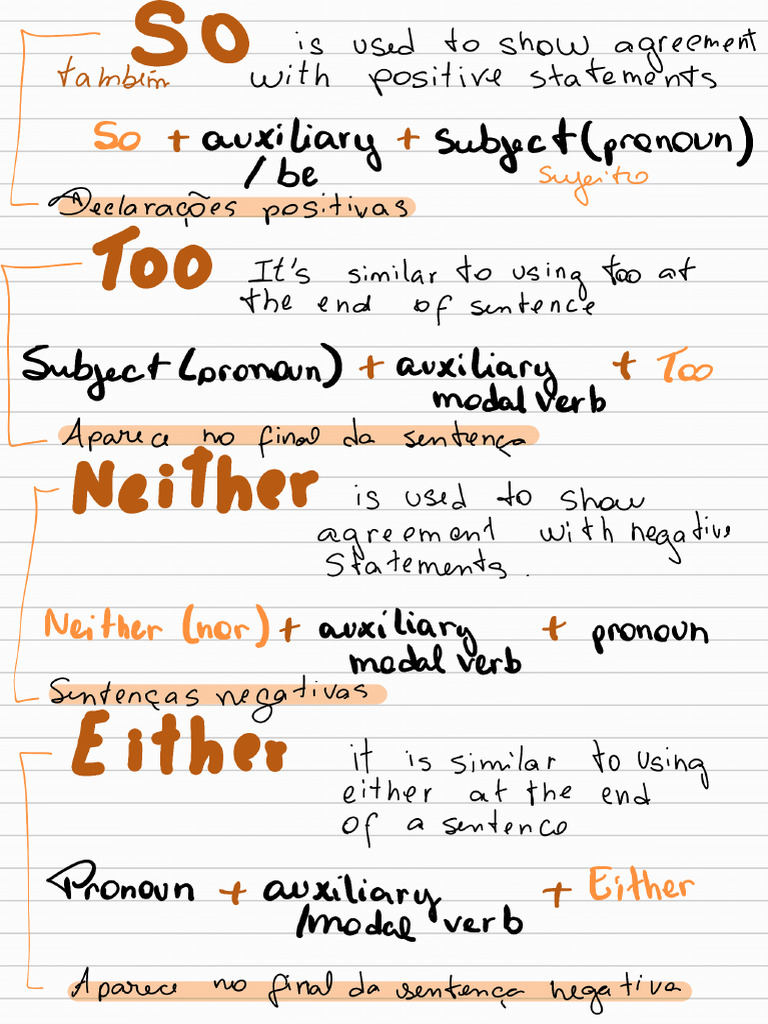 So is used to show agreement
também with positive statements
So + auxiliary + subject (pronoun)
/ be sujeito
Declarações positivas
Too It's similar to using too at
the end of sentence
Subject (pronoun) + auxiliary + Too
modal verb
Aparece no final da sentença
Neither is used to show
agreement with negative
statements.
Neither (nor) + auxiliary + pronoun
modal verb
Sentenças negativas
Either it is similar to using
either at the end
of a sentence
Pronoun + auxiliary + Either
/modal verb
Aparece no final da sentença negativa